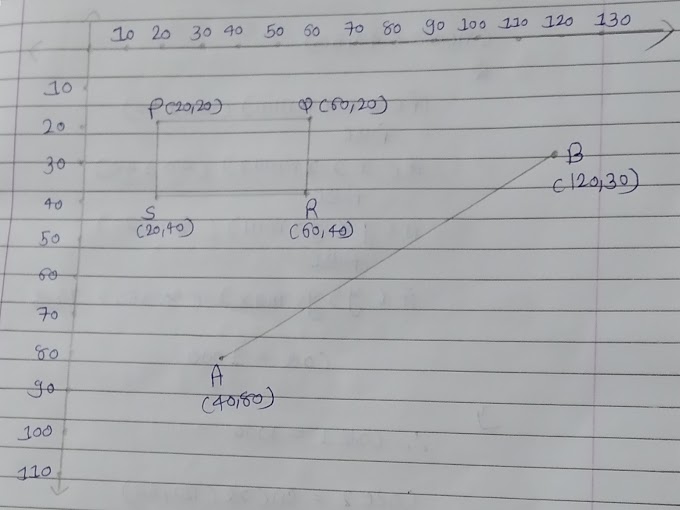 10 20 30 40 50 60 70 80 90 100 110 120 130
10
P(20,20) Q(60,20)
20
30
B
(120,30)
40
S R
(20,40) (60,40)
50
60
70
80
A
90
(40,80)
100
110